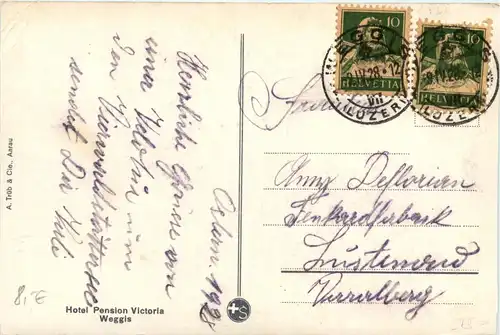 Ostern 1928
Herzliche Grüsse von
einer Velotour um
den Vierwaldstättersee
sendet Dir
A. Trüb & Cie., Aarau
Hotel Pension Victoria
Weggis
+S
10
HELVETIA
10
HELVETIA
WEGGIS
(LUZERN)
WEGGIS
(LUZERN)
Amy Deflorian
Lustenau
Vorarlberg